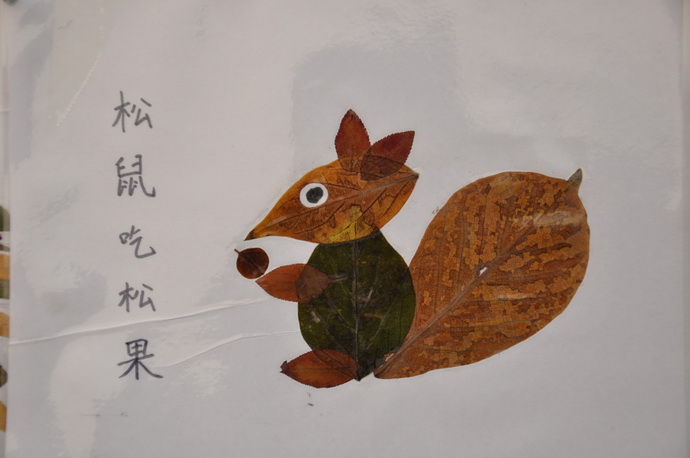 松鼠吃松果